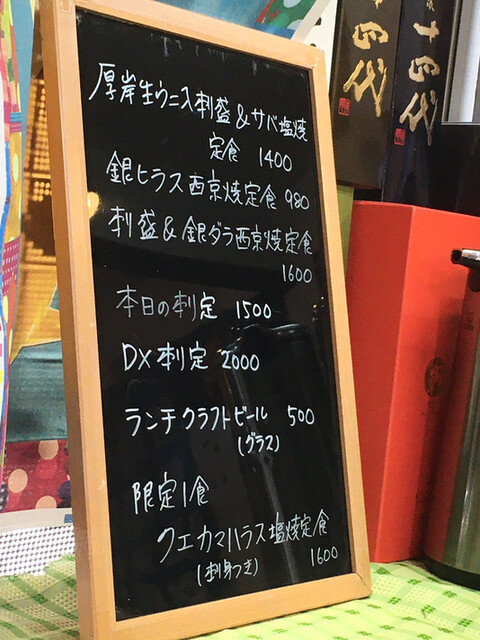 厚岸生ウニ入刺盛&サバ塩焼
定食 1400
銀ヒラス西京焼定食 980
刺盛&銀ダラ西京焼定食
1600
本日の刺定 1500
DX刺定 2000
ランチクラフトビール 500
(グラス)
限定1食
クエカマハラス塩焼定食
(刺身つき) 1600
十四代
十四代